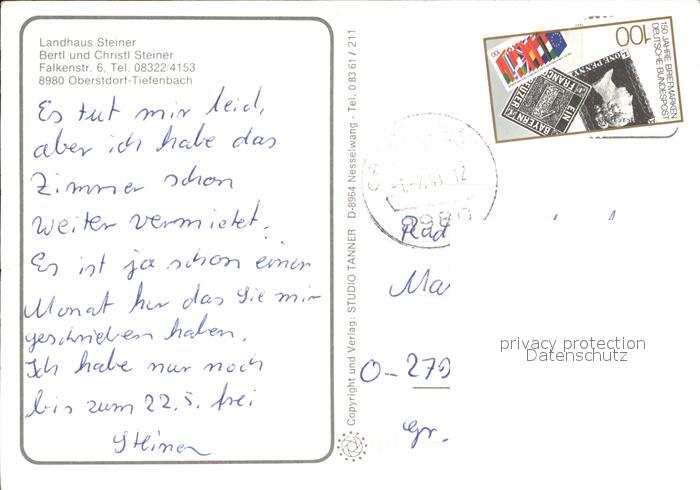 Landhaus Steiner
Bertl und Christl Steiner
Falkenstr. 6, Tel. 08322/4153
8980 Oberstdorf-Tiefenbach
Es tut mir leid,
aber ich habe das
Zimmer schon
weiter vermietet.
Es ist ja schon einen
Monat her das Sie mir
geschrieben haben.
Ich habe nur noch
bis zum 22.5. frei
Steiner
Copyright und Verlag: STUDIO TANNER D-8964 Nesselwang · Tel. 0 83 61 / 211
100
150 JAHRE BRIEFMARKEN
DEUTSCHE BUNDESPOST
ONE PENNY
EIN
KREUZER
BAYERN
FRANCO
8980
Ma
O-279
Gr.
privacy protection
Datenschutz